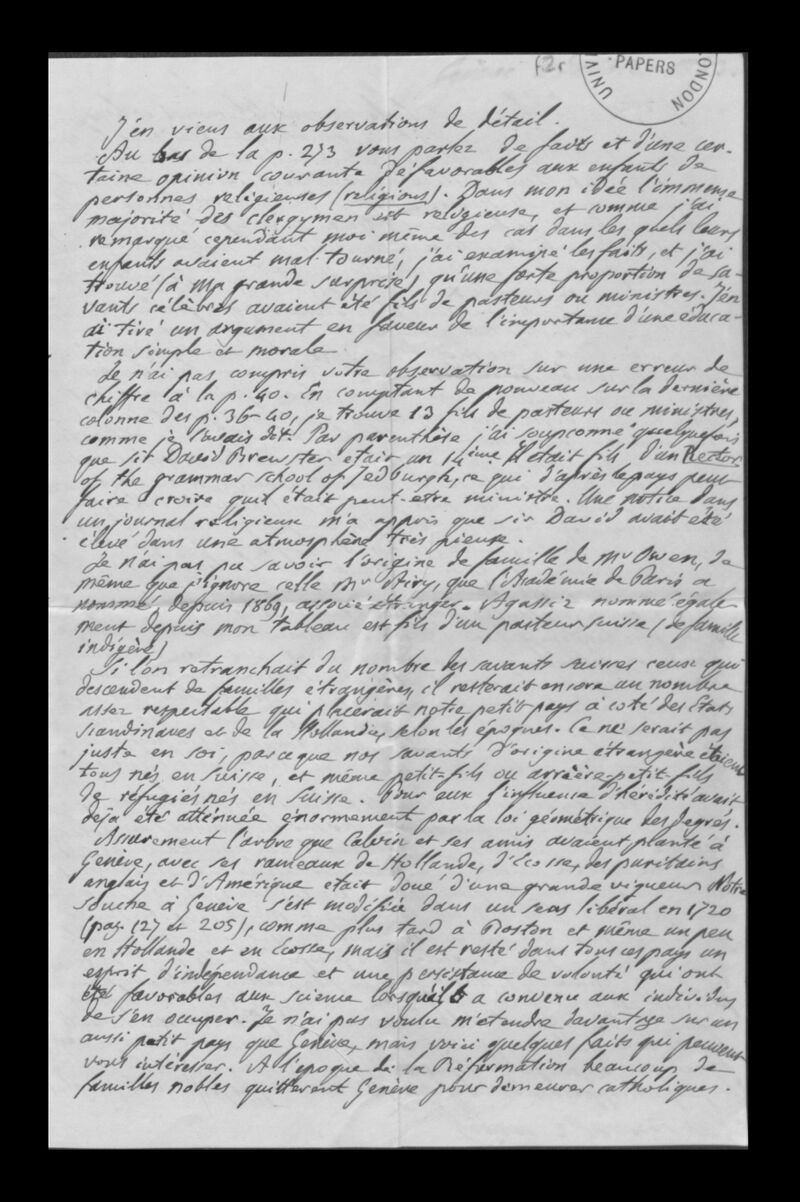 f2r
UNIV
PAPERS
LONDON
J'en viens aux observations de détail.
Au bas de la p. 273 vous parlez de faits et d'une cer-
taine opinion courante défavorables aux enfants de
personnes religieuses (religious). Dans mon idée l'immense
majorité des clergymen est religieuse, et comme j'ai
remarqué cependant moi même des cas dans les quels leurs
enfants avaient mal tourné, j'ai examiné les faits, et j'ai
trouvé (à ma grande surprise) qu'une forte proportion de sa-
vants célèbres avaient été fils de pasteurs ou ministres. J'en
ai tiré un argument en faveur de l'importance d'une éduca-
tion simple et morale.
Je n'ai pas compris votre observation sur une erreur de
chiffre à la p. 40. En comptant de nouveau sur la dernière
colonne des p. 36-40, je trouve 13 fils de pasteurs ou ministres,
comme je l'avais dit. Par parenthèse j'ai soupçonné quelquefois
que sir David Brewster etait un 14ème Il était fils d'un Rector
of the grammar school of Jedburgh, ce qui d'après le pays peut
faire croire qu'il était peut-etre ministre. Une notice dans
un journal religieux m'a appris que sir David avait été
élevé dans une atmosphère très pieuse.
Je n'ai pas pu savoir l'origine de famille de Mr Owen, de
même que j'ignore celle Mr Airy, que l'Académie de Paris a
nommé, depuis 1869, associé étranger. Agassiz nommé égale-
ment depuis mon tableau est fils d'un pasteur suisse (de famille
indigène)
Si l'on retranchait du nombre des savants suisses ceux qui
descendent de familles étrangères, il resterait encore un nombre
assez respectable qui placerait notre petit pays à coté des Etats
scandinaves et de la Hollande, selon les époques. Ce ne serait pas
juste en soi, parce que nos savants d'origine étrangère étaient
tous nés en Suisse, et même petit-fils ou arrière-petit-fils
de réfugiés nés en Suisse. Pour eux l'influence d'hérédité avait
déjà été atténuée énormement par la loi géométrique des degrés.
Assurement l'arbre que Calvin et ses amis avaient planté à
Genève, avec ses rameaux de Hollande, d'Ecosse, des puritains
anglais et d'Amérique etait doué d'une grande vigueur Notre
souche à Genève s'est modifiée dans un sens libéral en 1720
(pag. 127 et 205), comme plus tard à Boston et même un peu
en Hollande et en Ecosse, mais il est resté dans tous ces pays un
esprit d'indépendance et une persistance de volonté qui ont
été favorables aux science lorsqu'il a convenu aux individus
de s'en occuper. Je n'ai pas voulu m'etendre davantage sur un
aussi petit pays que Genève, mais voici quelques faits qui peuvent
vous intéresser. A l'époque de la Réformation beaucoup de
familles nobles quitterent Genève pour demeurer catholiques.